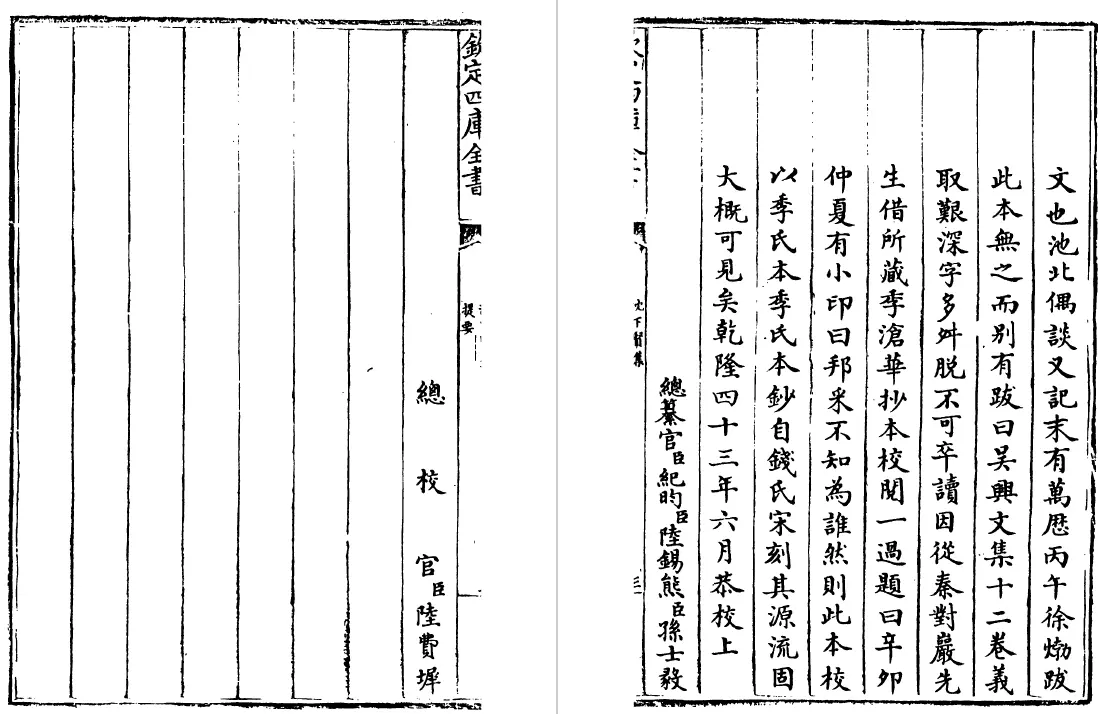 文也池北偶談又記末有萬歴丙午徐𤊹跋
此本無之而别有跋曰吴興文集十二巻義
取艱深字多舛脱不可卒讀因從秦對巖先
生借所藏季滄葦抄本校閲一過題曰辛卯
仲夏有小印曰邦采不知為誰然則此本校
以季氏本季氏本鈔自錢氏宋刻其源流固
大概可見矣乾隆四十三年六月恭校上
總纂官臣紀昀臣陸錫熊臣孫士毅
沈下賢集
三
欽定四庫全書
提要
總校官臣陸費墀